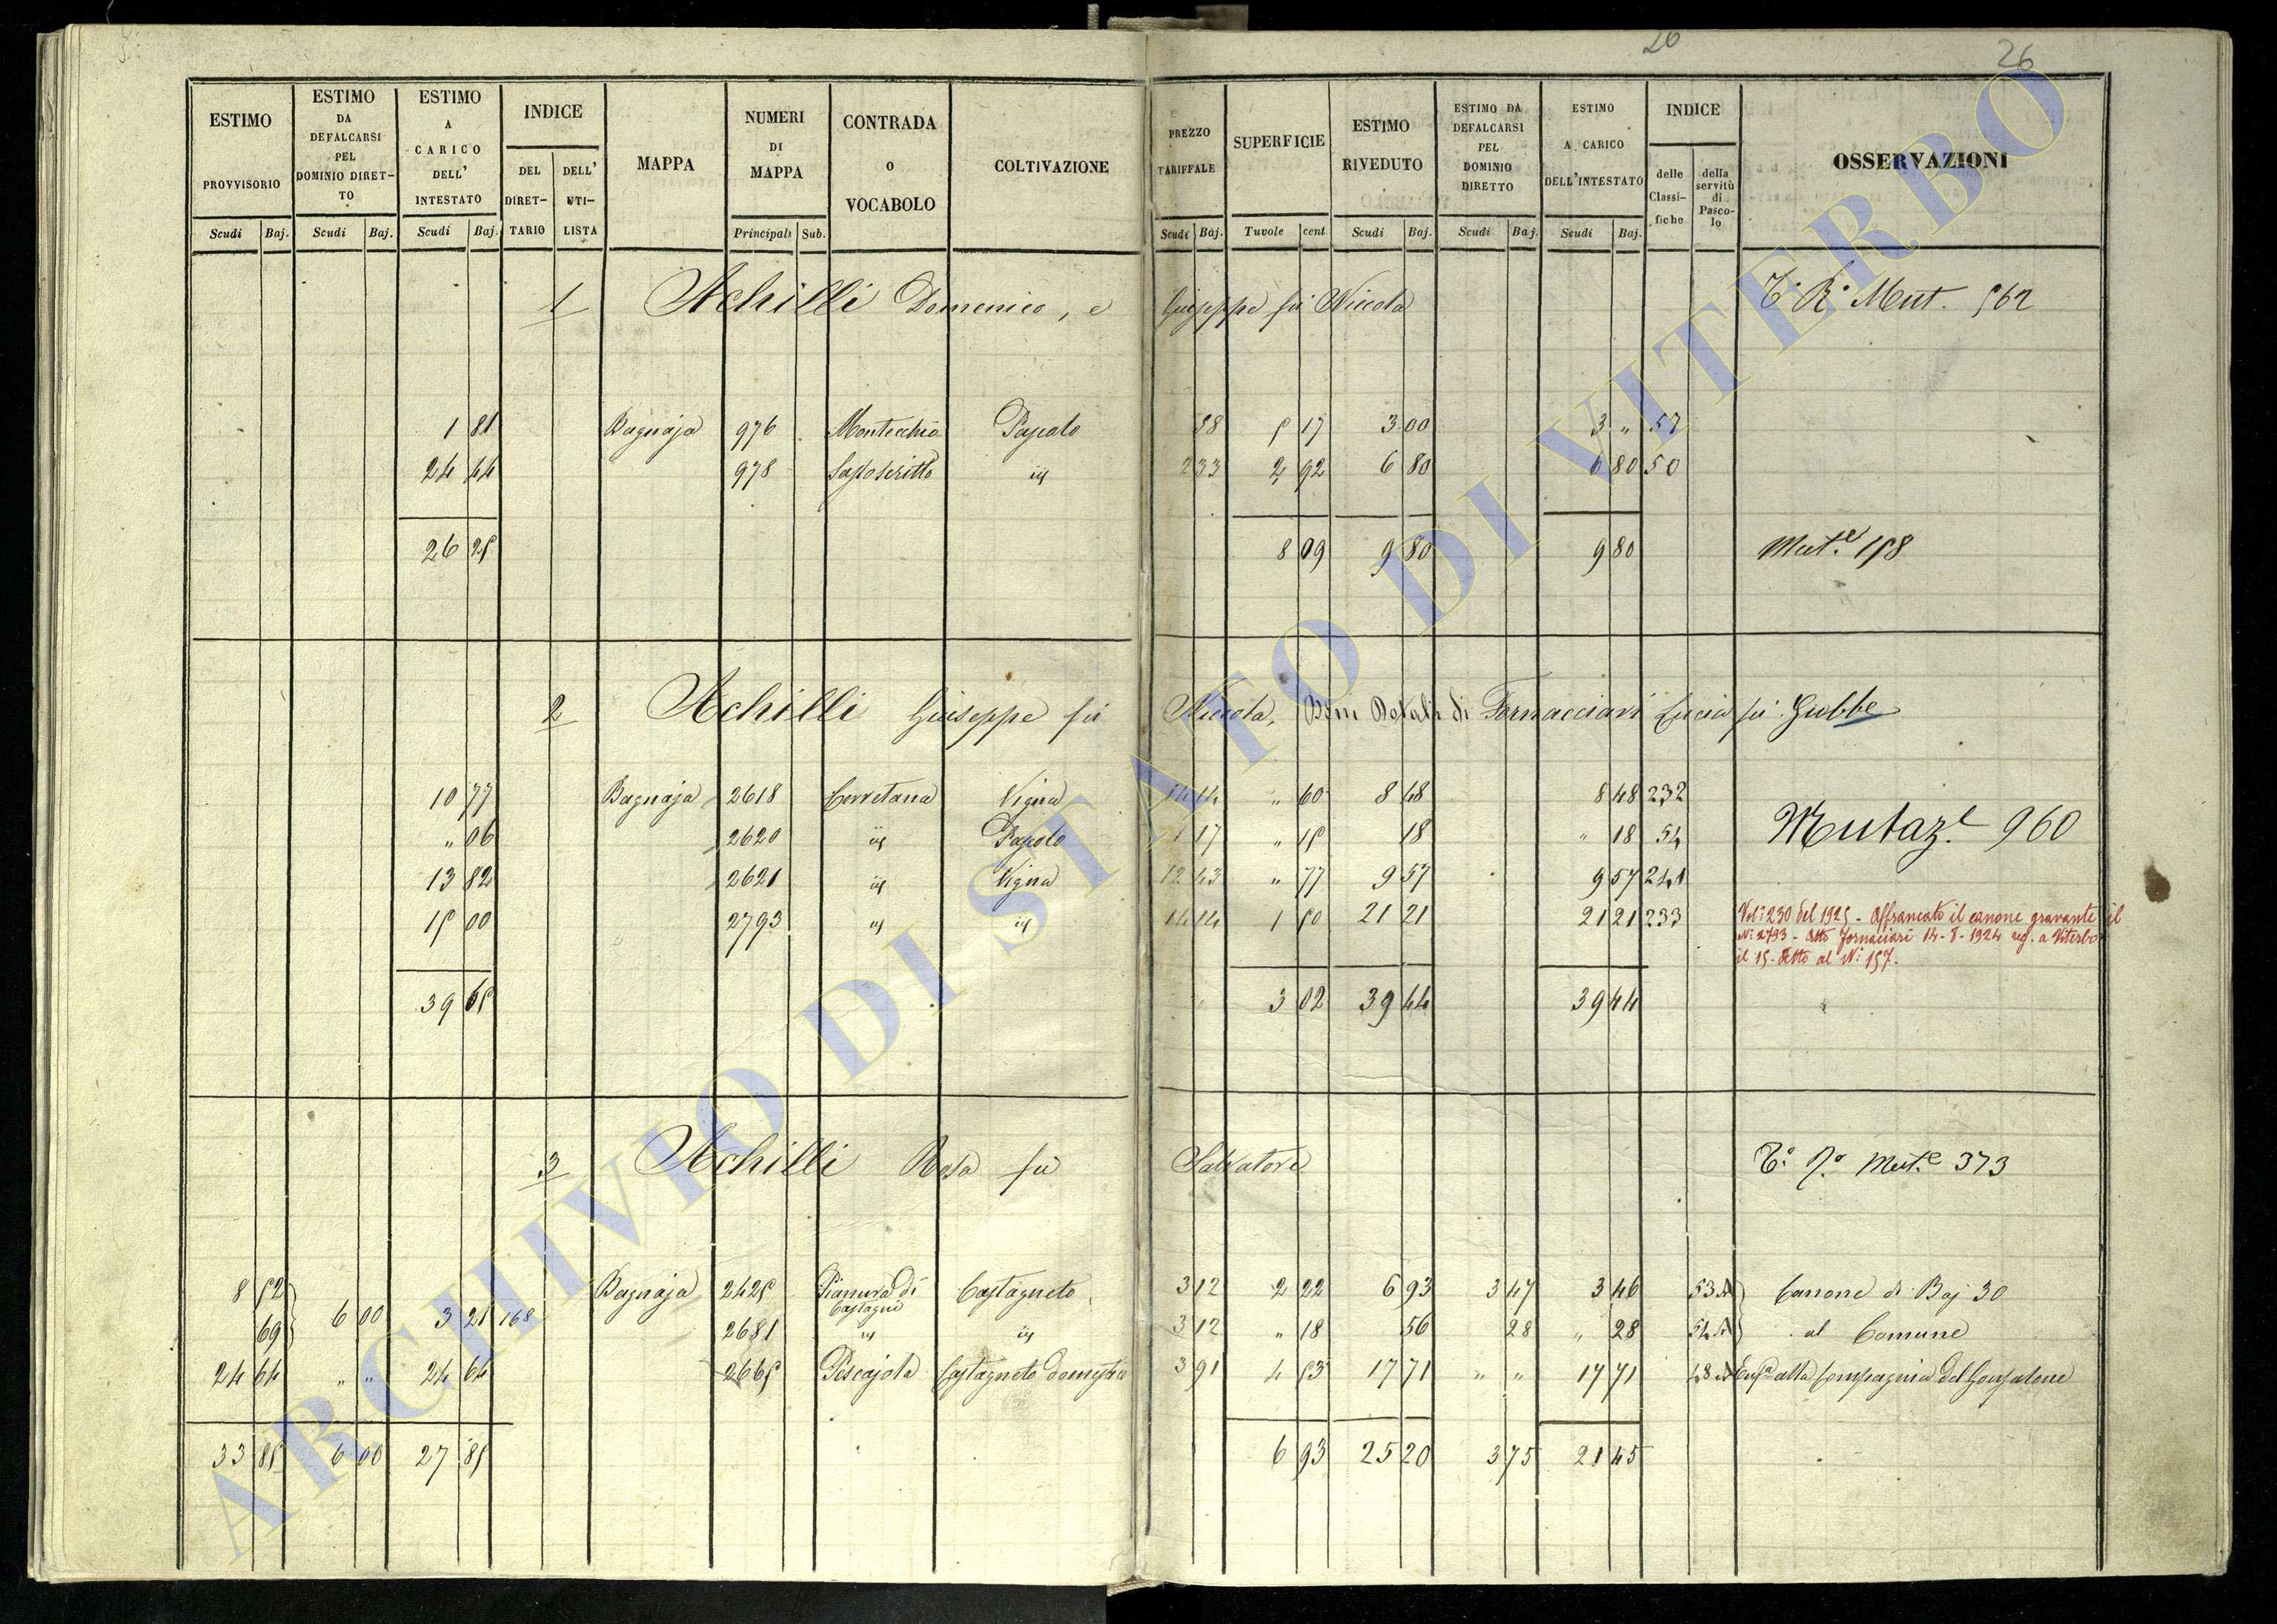 26
26
ESTIMO PROVVISORIO
ESTIMO DA DEFALCARSI PEL DOMINIO DIRET-TO
ESTIMO A CARICO DELL' INTESTATO
INDICE
DEL DIRET-TARIO
DELL' UTI-LISTA
MAPPA
NUMERI DI MAPPA
CONTRADA O VOCABOLO
COLTIVAZIONE
PREZZO TARIFFALE
SUPERFICIE
ESTIMO RIVEDUTO
ESTIMO DA DEFALCARSI PEL DOMINIO DIRETTO
ESTIMO A CARICO DELL'INTESTATO
INDICE
delle Classi-fiche
della servitù di Pasco-lo
OSSERVAZIONI
Scudi Baj. Scudi Baj. Scudi Baj. Principali Sub. Scudi Baj. Tavole cent Scudi Baj. Scudi Baj. Scudi Baj.
1 Achilli Domenico, e Giuseppe fù Niccola Mut. 562
1 81 Bagnaja 976 Montecchio Pascolo 58 5 17 3 00 3 " 57
24 44 978 Sassoscritto id 2 33 2 92 6 80 6 80 50
26 25 8 09 9 80 9 80 Mut.e 158
2 Achilli Giuseppe fù Niccola, Beni Dotali di Fornacciari Lucia fù Gubbe
10 77 Bagnaja 2618 Cerretana Vigna 14 14 " 60 8 48 8 48 232
" 06 2620 id Pascolo 1 17 " 15 18 " 18 54
Mutaz.e 960
13 82 2621 id Vigna 12 43 " 77 9 57 9 57 241
15 00 2793 id id 14 14 1 50 21 21 21 21 233
Vol: 230 del 1925 - Affrancato il canone gravante il
N: 2793 - Atto Fornaciari 14-8-1924 reg. a Viterbo
il 15 - detto al N: 157.
39 65 3 02 39 44 39 44
3 Achilli Rosa fù Salvatore Mut.e 373
8 52 Bagnaja 2425 Pianura di Castagno Castagneto 3 12 2 22 6 93 3 47 3 46 53 A Canone di Baj 30
69 6 00 3 21 168 2681 id id 3 12 " 18 56 28 " 28 54 A al Comune
24 64 " " 24 64 2665 Pescajola Castagneto domestico 3 91 4 53 17 71 " " 17 71 48 A alla Compagnia del Gonfalone
33 85 6 00 27 85 6 93 25 20 3 75 21 45
ARCHIVIO DI STATO DI VITERBO